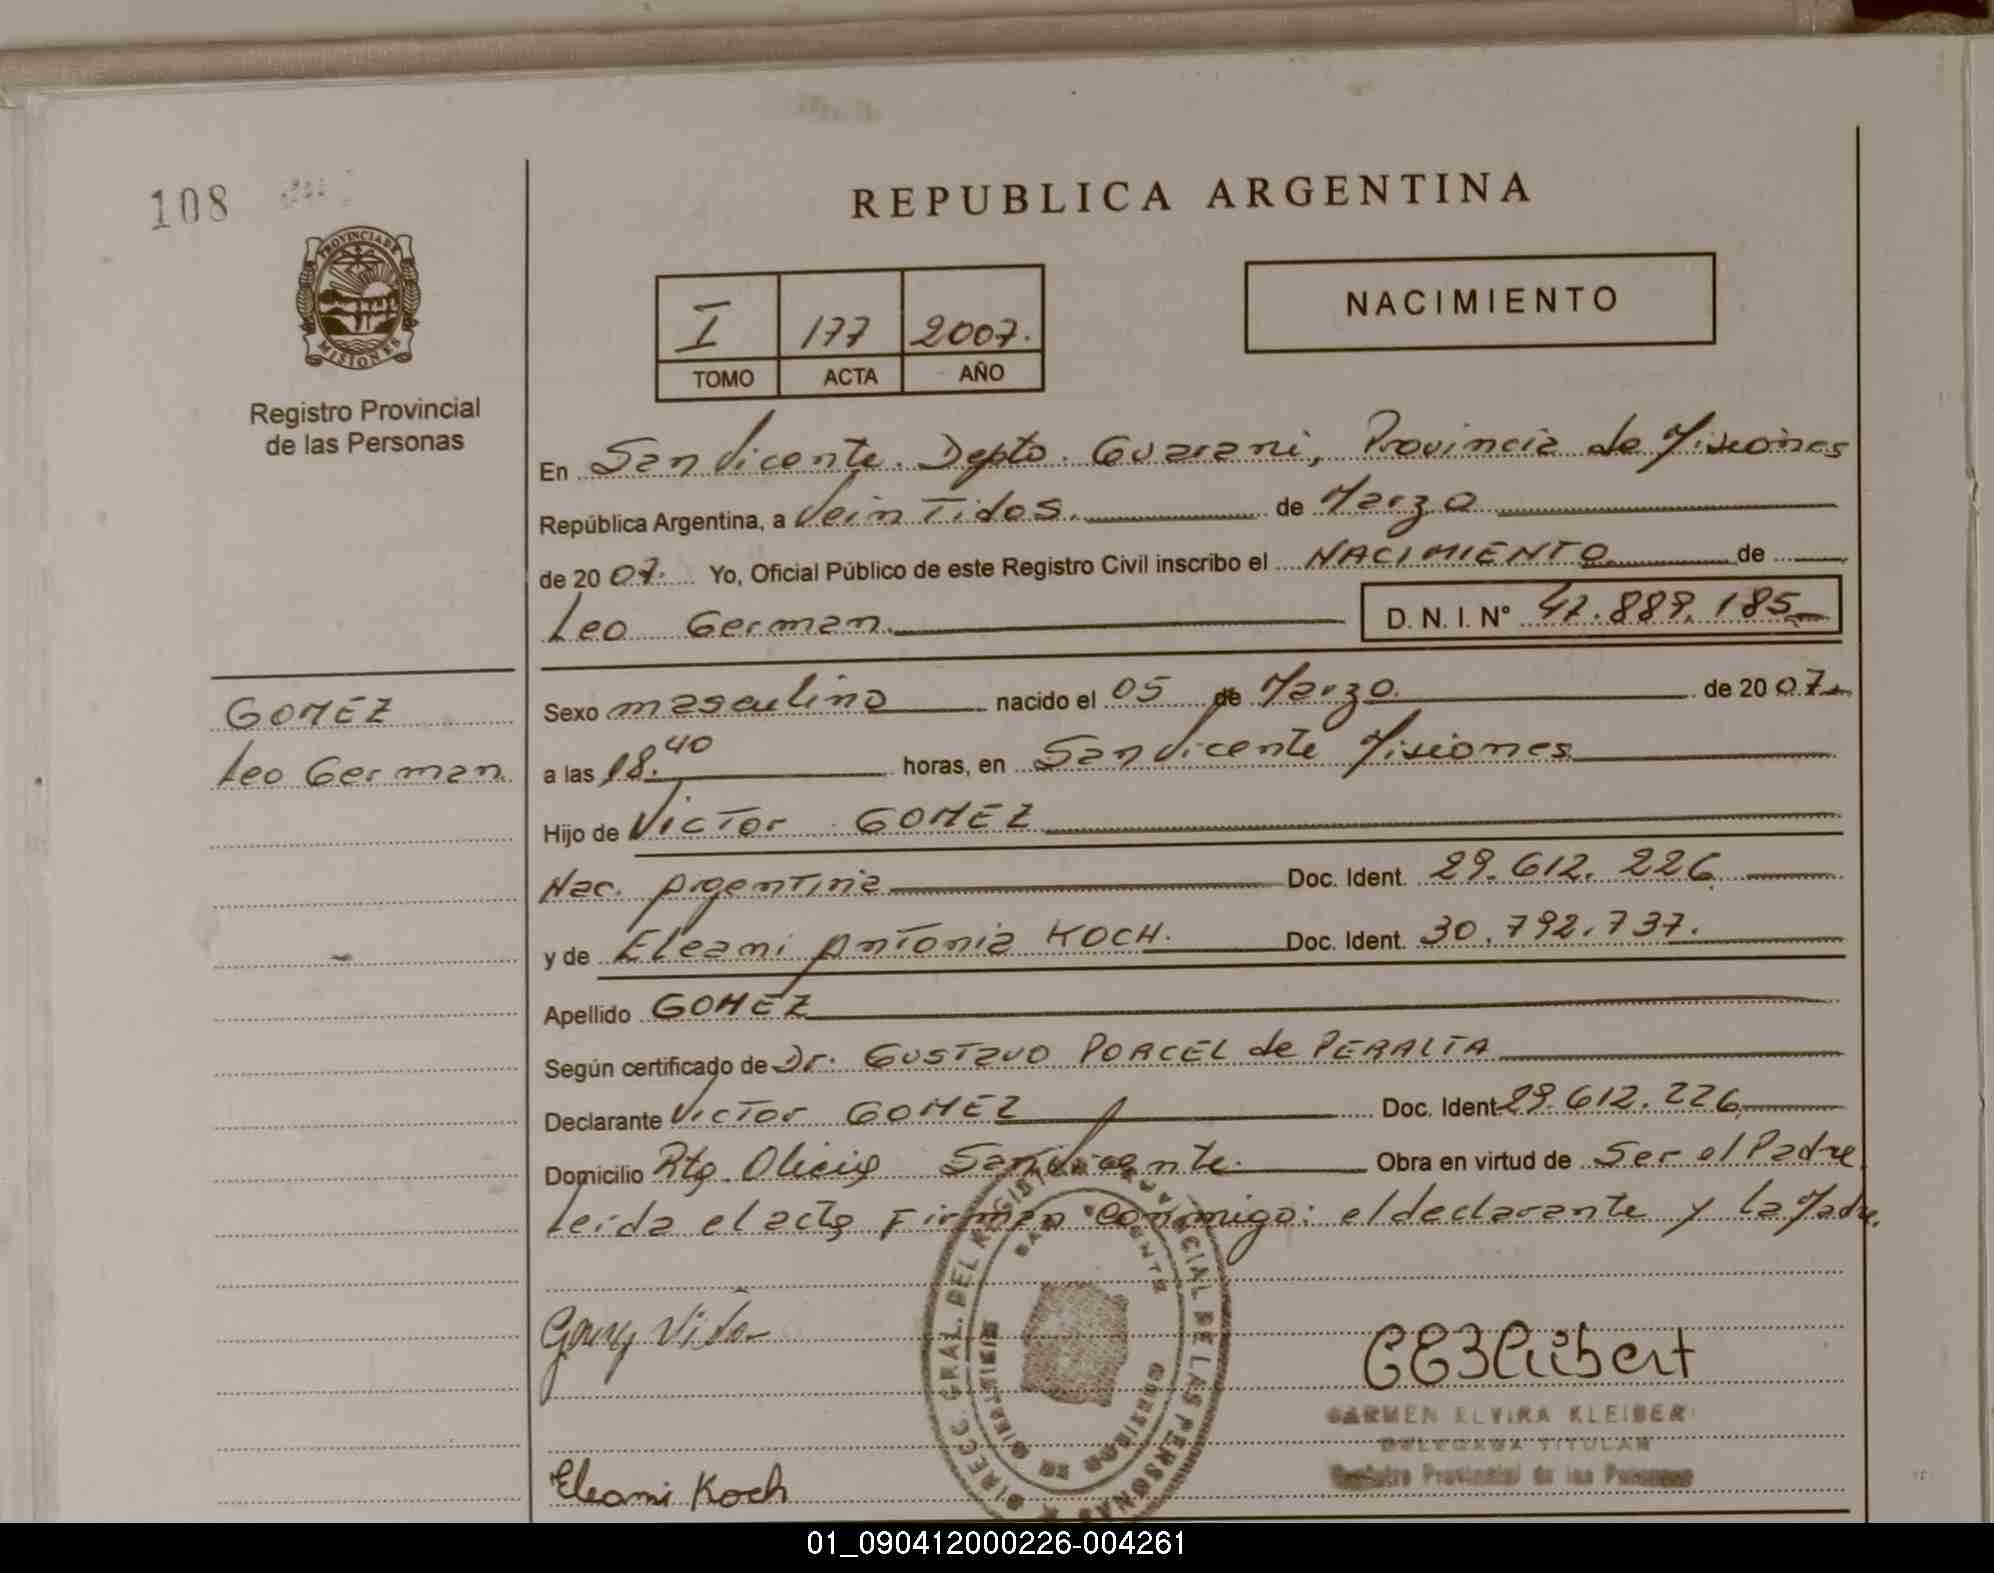 108
PROVINCIA DE
MISIONES
Registro Provincial
de las Personas
REPUBLICA ARGENTINA
I 177 2007.
TOMO ACTA AÑO
NACIMIENTO
En San Vicente. Depto. Guarani, Provincia de Misiones
República Argentina, a Vein Tidos. de Marzo
de 20 07. Yo, Oficial Público de este Registro Civil inscribo el NACIMIENTO de
Leo German. D. N. I. N° 47.889.185
GOMEZ
Leo German.
Sexo masculino nacido el 05 de Marzo. de 20 07
a las 18.40 horas, en San Vicente Misiones
Hijo de Victor GOMEZ
Nac. Argentina Doc. Ident. 29.612.226
y de Eleani Antonia KOCH. Doc. Ident. 30.792.737.
Apellido GOMEZ
Según certificado de Dr. GUSTavo PORCEL de PERALTA
Declarante Victor GOMEZ Doc. Ident 29.612.226
Domicilio San Vicente. Obra en virtud de Ser el Padre
Leida el acta Firman conmigo: el declarante y la Madre.
DIRECC. GRAL. DEL REGISTRO PROVINCIAL DE LAS PERSONAS
SAN VICENTE
Gomez Victor
CARMEN ELVIRA KLEIBER
DELEGADA TITULAR
Registro Provincial de las Personas
Eleani Koch
01_090412000226-004261